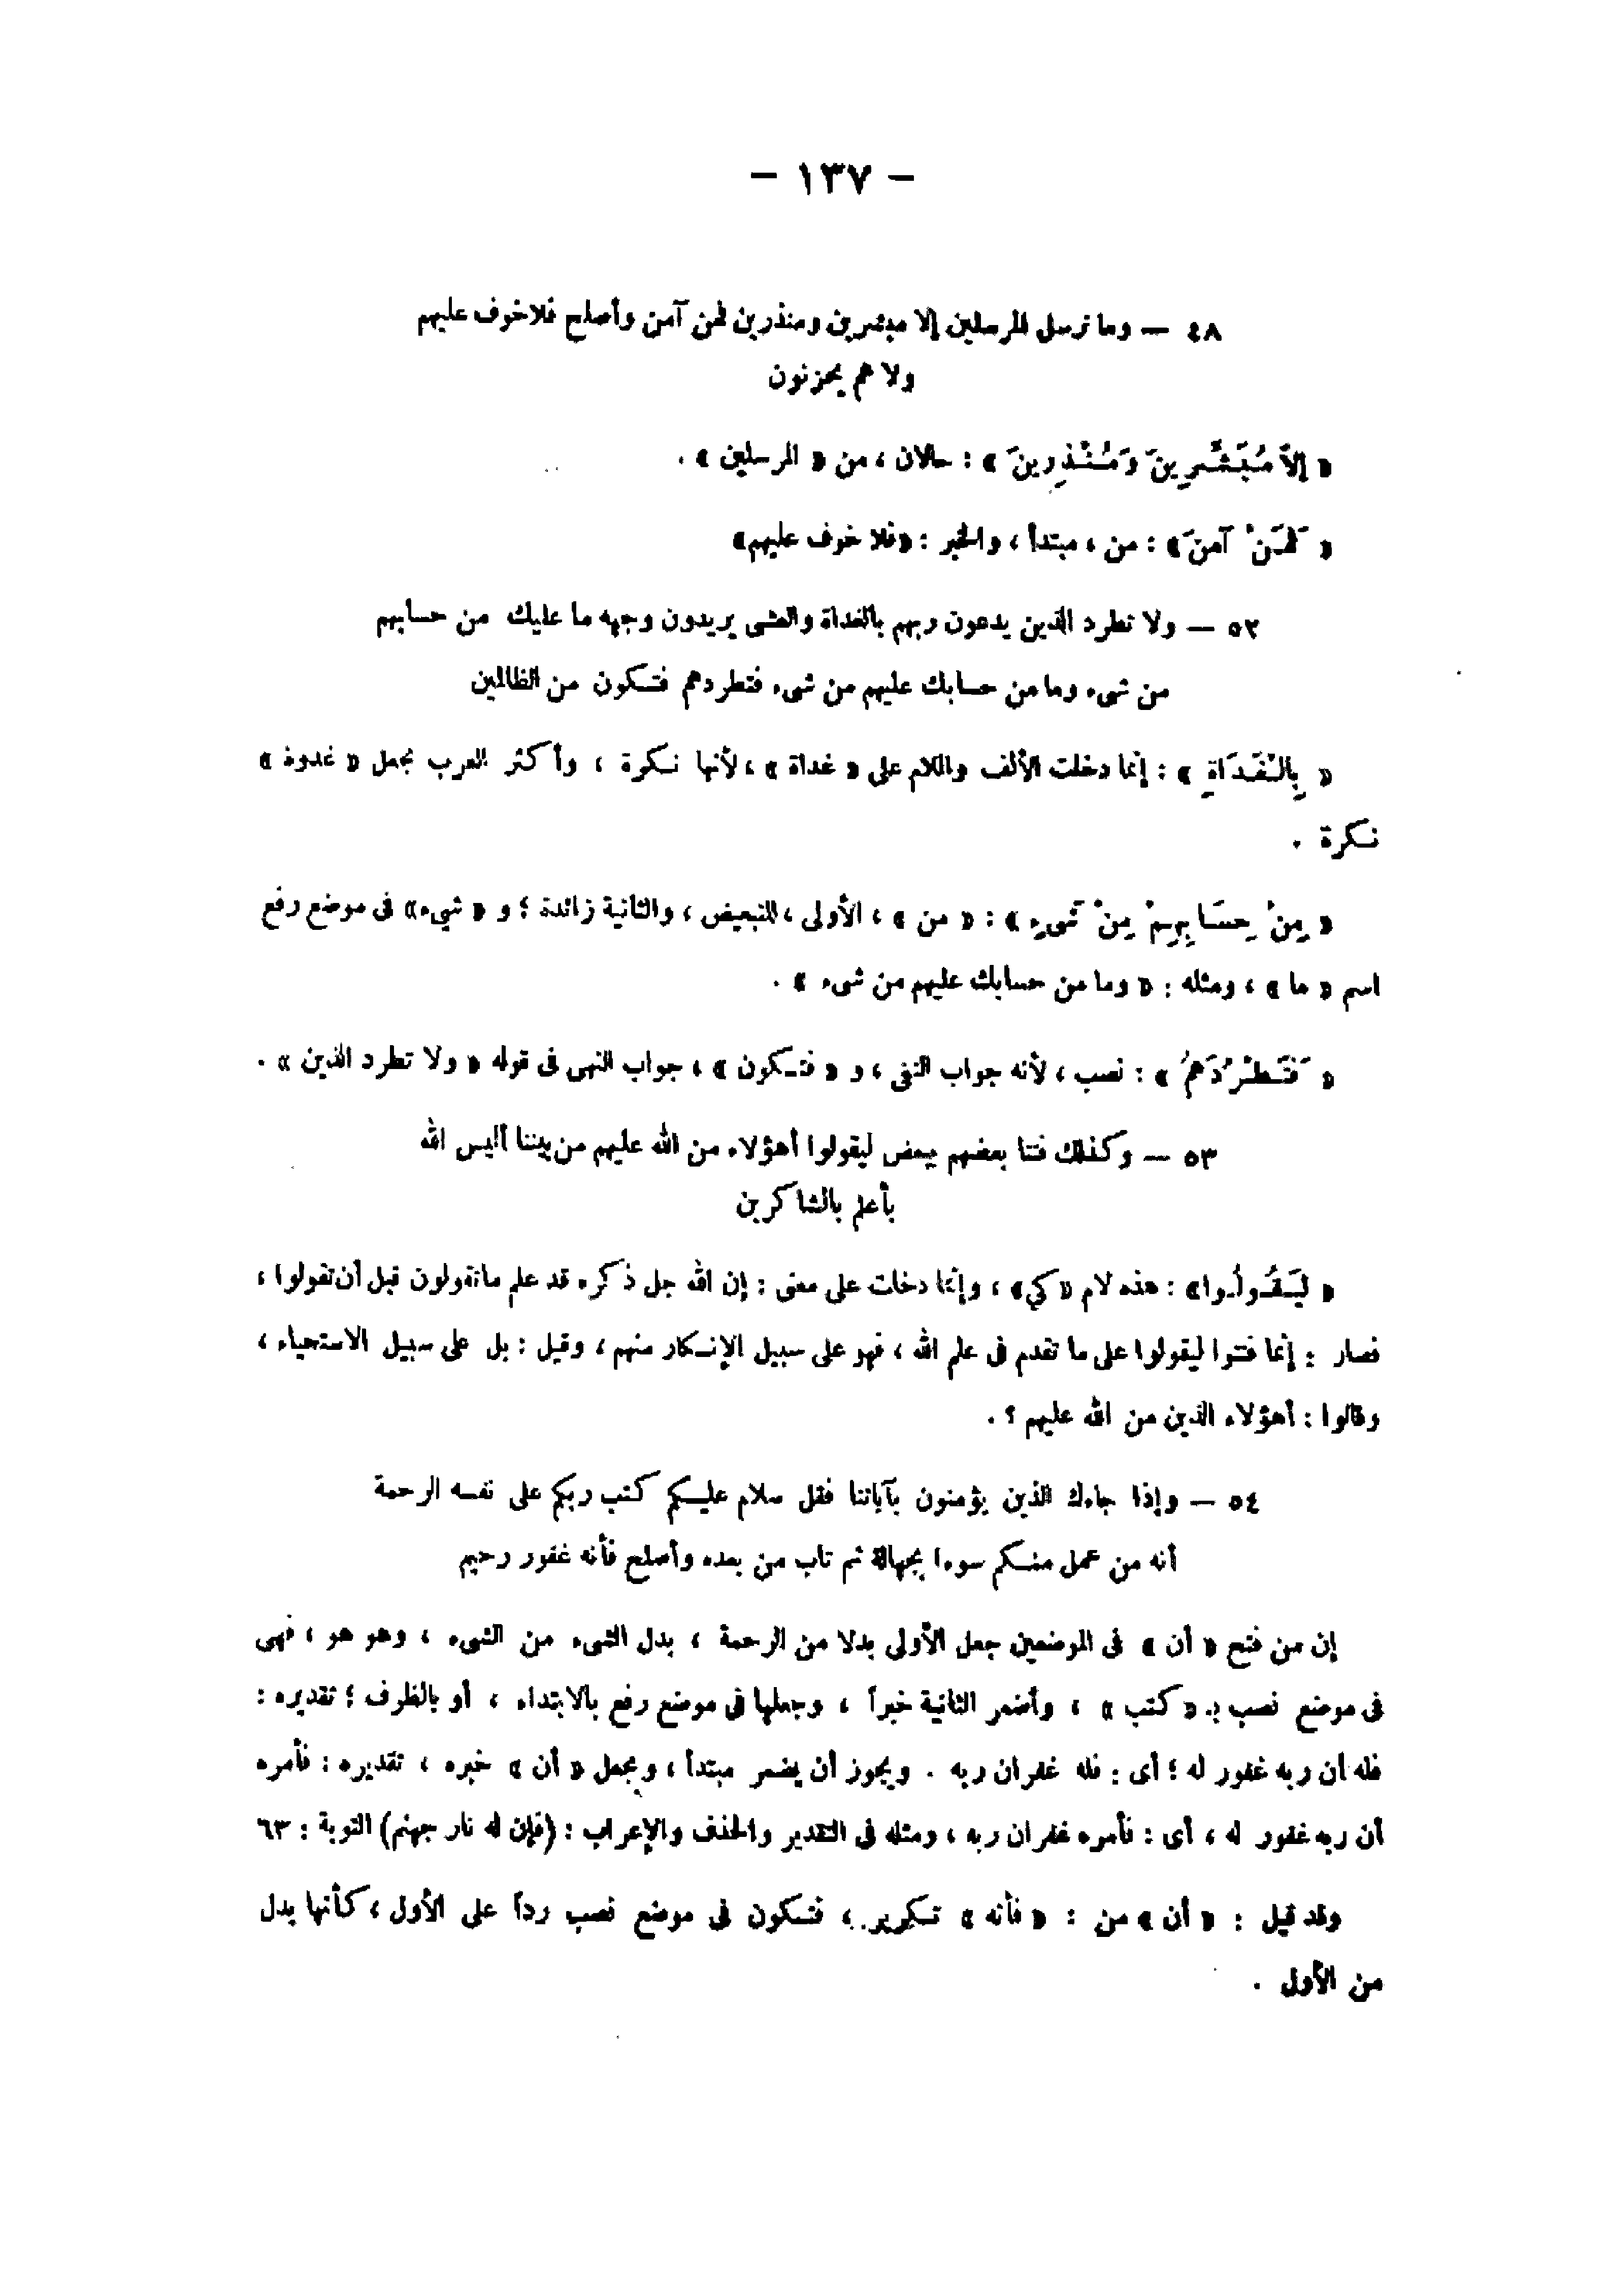 — ١٣٧ —
٤٨ — وما نرسل المرسلين إلا مبشرين ومنذرين فمن آمن وأصلح فلا خوف عليهم
ولا هم يحزنون
« إِلاَّ مُبَشِّرِينَ وَمُنْذِرِينَ » : حالان ، من « المرسلين » .
« فَمَنْ آمَنَ » : من ، مبتدأ ، والخبر : «فلا خوف عليهم»
٥٢ — ولا تطرد الذين يدعون ربهم بالغداة والعشى يريدون وجهه ما عليك من حسابهم
من شىء وما من حسابك عليهم من شىء فتطردهم فتكون من الظالمين
« بِالْغَدَاةِ » : إنما دخلت الألف واللام على « غداة » ، لأنها نكرة ، وأكثر العرب يجعل « غدوة »
نكرة .
« مِنْ حِسَابِهِمْ مِنْ شَىءٍ » : « من » ، الأولى ، للتبعيض ، والثانية زائدة ؛ و « شيء» فى موضع رفع
اسم « ما » ، ومثله : « وما من حسابك عليهم من شىء » .
« فَتَطْرُدَهُمْ » : نصب ، لأنه جواب النفى ، و « فتكون » ، جواب النهى فى قوله « ولا تطرد الذين » .
٥٣ — وكذلك فتنا بعضهم ببعض ليقولوا أهؤلاء من الله عليهم من بيننا أليس الله
بأعلم بالشاكرين
« لِيَقُولُوا» : هذه لام «كي» ، وإنما دخلت على معنى : إن الله جل ذكره قد علم ما تقولون قبل أن تقولوا ،
فصار : إنما فتنوا ليقولوا على ما تقدم فى علم الله ، فهو على سبيل الإنكار منهم ، وقيل : بل على سبيل الاستحياء ،
وقالوا : أهؤلاء الذين من الله عليهم ؟ .
٥٤ — وإذا جاءك الذين يؤمنون بآياتنا فقل سلام عليكم كتب ربكم على نفسه الرحمة
أنه من عمل منكم سوءا بجهالة ثم تاب من بعده وأصلح فأنه غفور رحيم
إن من فتح « أن » فى الموضعين جعل الأولى بدلا من الرحمة ، بدل الشىء من الشىء ، وهو هو ، فهى
فى موضع نصب بـ « كتب » ، وأضمر الثانية خبراً ، وجعلها فى موضع رفع بالابتداء ، أو بالظرف ؛ تقديره :
فله أن ربه غفور له ؛ أى : فله غفران ربه . ويجوز أن يضمر مبتدأ ، ويجعل « أن » خبره ، تقديره : فأمره
أن ربه غفور له ، أى : فأمره غفران ربه ، ومثله فى التقدير والحذف والإعراب : (فإن له نار جهنم) التوبة : ٦٣
وقد قيل : « أن » من : « فأنه » تكرير ، فتكون فى موضع نصب رداً على الأول ، كأنها بدل
من الأول .